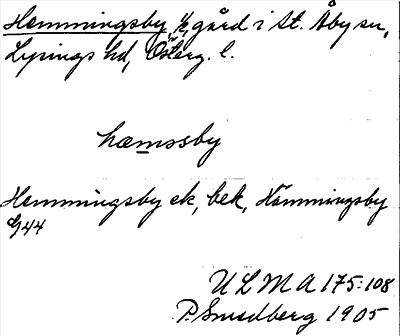 Hemmingsby, gård i St. Åby sn,
Lysings hd, Österg. l.
hæmosby
Hemmingsby ek, bek, Hämmingsby
G44
ULMA 175:108
P. Smedberg 1905